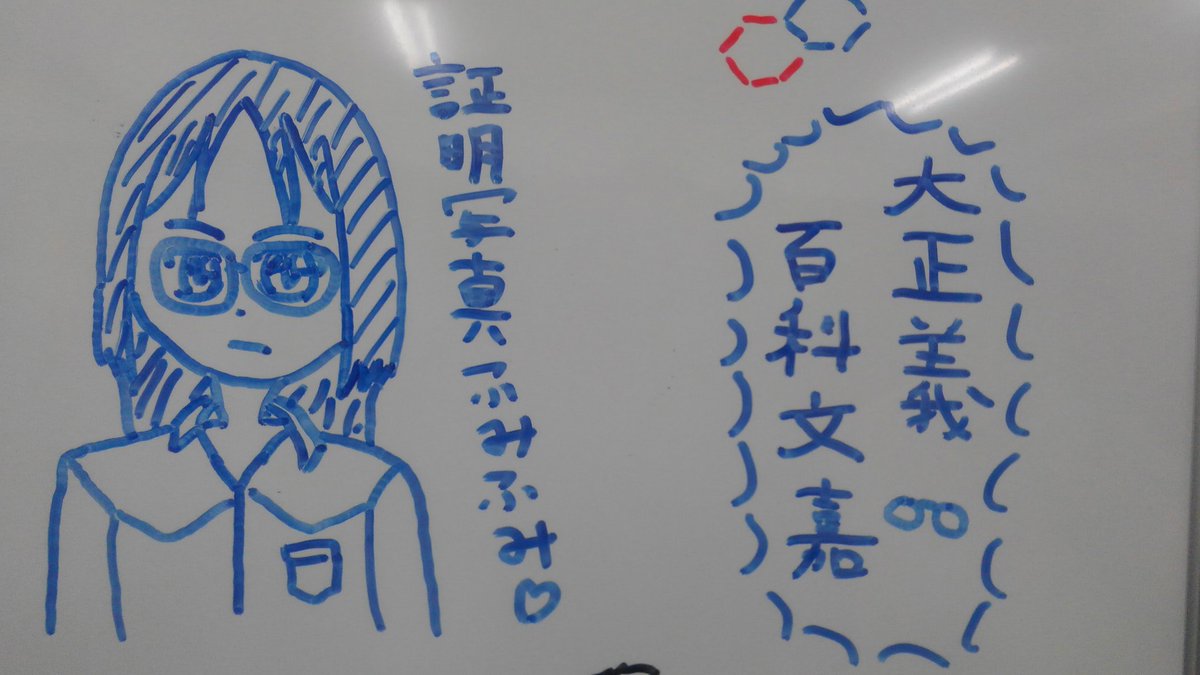 証明写真ふみふみ♡
大正義
百科文嘉